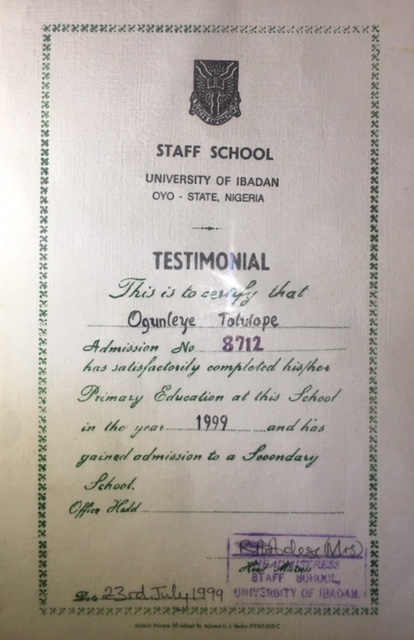 STAFF SCHOOL
UNIVERSITY OF IBADAN
OYO - STATE, NIGERIA
TESTIMONIAL
This is to certify that
Ogunleye Tolulope
Admission No 8712
has satisfactorily completed his/her
Primary Education at this School
in the year 1999 and has
gained admission to a Secondary
School.
Office Held
(Mrs)
HEADMISTRESS
STAFF SCHOOL,
UNIVERSITY OF IBADAN.
Date 23rd July 1999